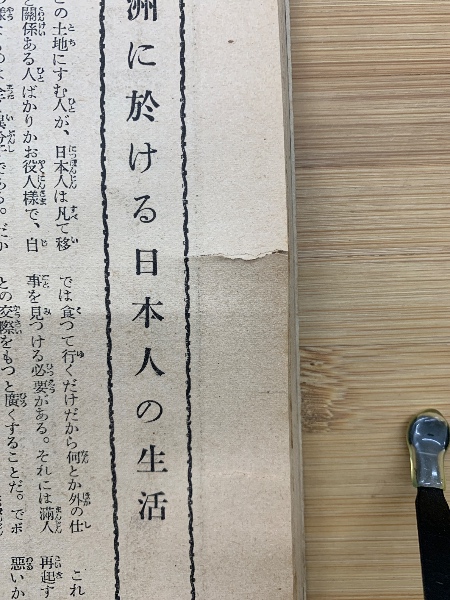 洲に於ける日本人の生活
この土地にすむ人が、日本人は凡て移
と關係ある人ばかりかお役人樣で、白
である。だか
では食つて行くだけだから何とか外の仕
事を見つける必要がある。それには滿人
との交際をもつと廣くすることだ。でボ
これ
再起す
悪いか